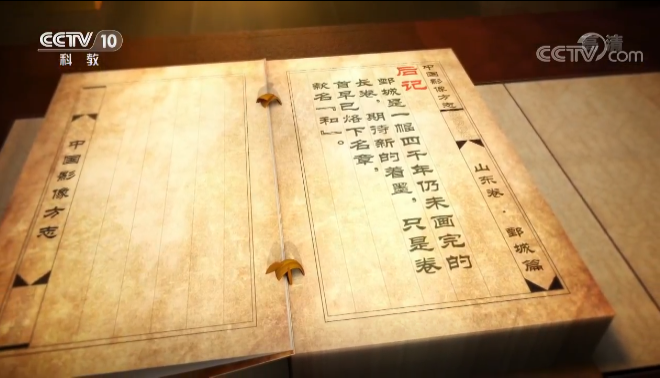 CCTV 10
科教
高清
CCTV.com
山东卷·鄄城篇
中国影像方志
后记
鄄城是一幅四千年仍未画完的
长卷，期待新的着墨，只是卷
首早已烙下名章，
款名『和』。
中国影像方志